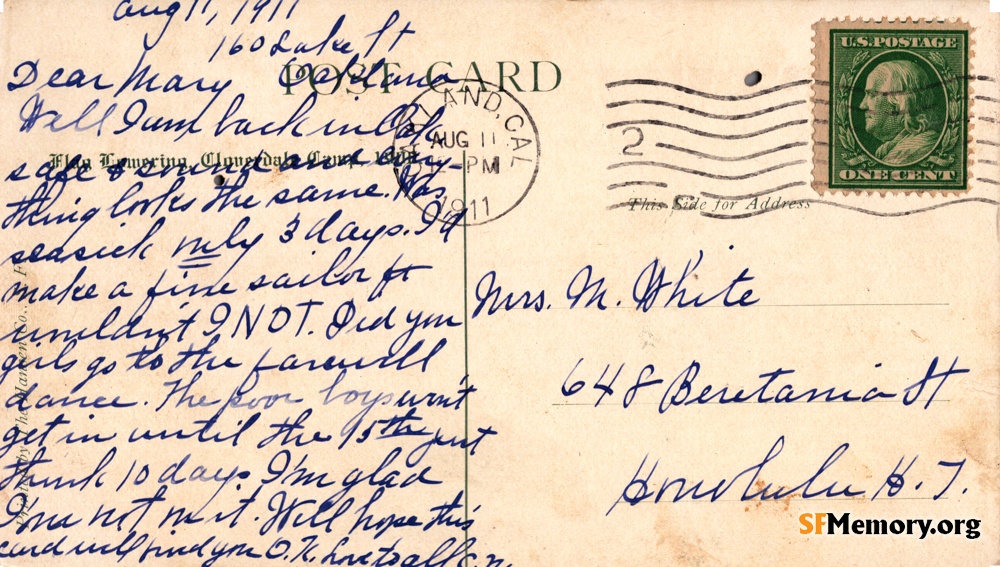 Aug 11, 1911
160 Lake St
Oakland
Dear Mary
Well I am back in Oak.
safe & sound and every-
thing looks the same. Was
seasick only 3 days. I'd
make a fine sailor
wouldn't I NOT. Did you
girls go to the farewell
dance. The poor boys won't
get in until the 15th just
think 10 days. I'm glad
I'm not on it. Will hope this
card will find you O.K. Love to all
POST CARD
Flag Lowering, Cloverdale Camp,
Printed by The
OAKLAND, CAL
AUG 11
PM
1911
2
U.S. POSTAGE
ONE CENT
This Side for Address
Mrs. M. White
648 Beretania St
Honolulu H. T.
SFMemory.org